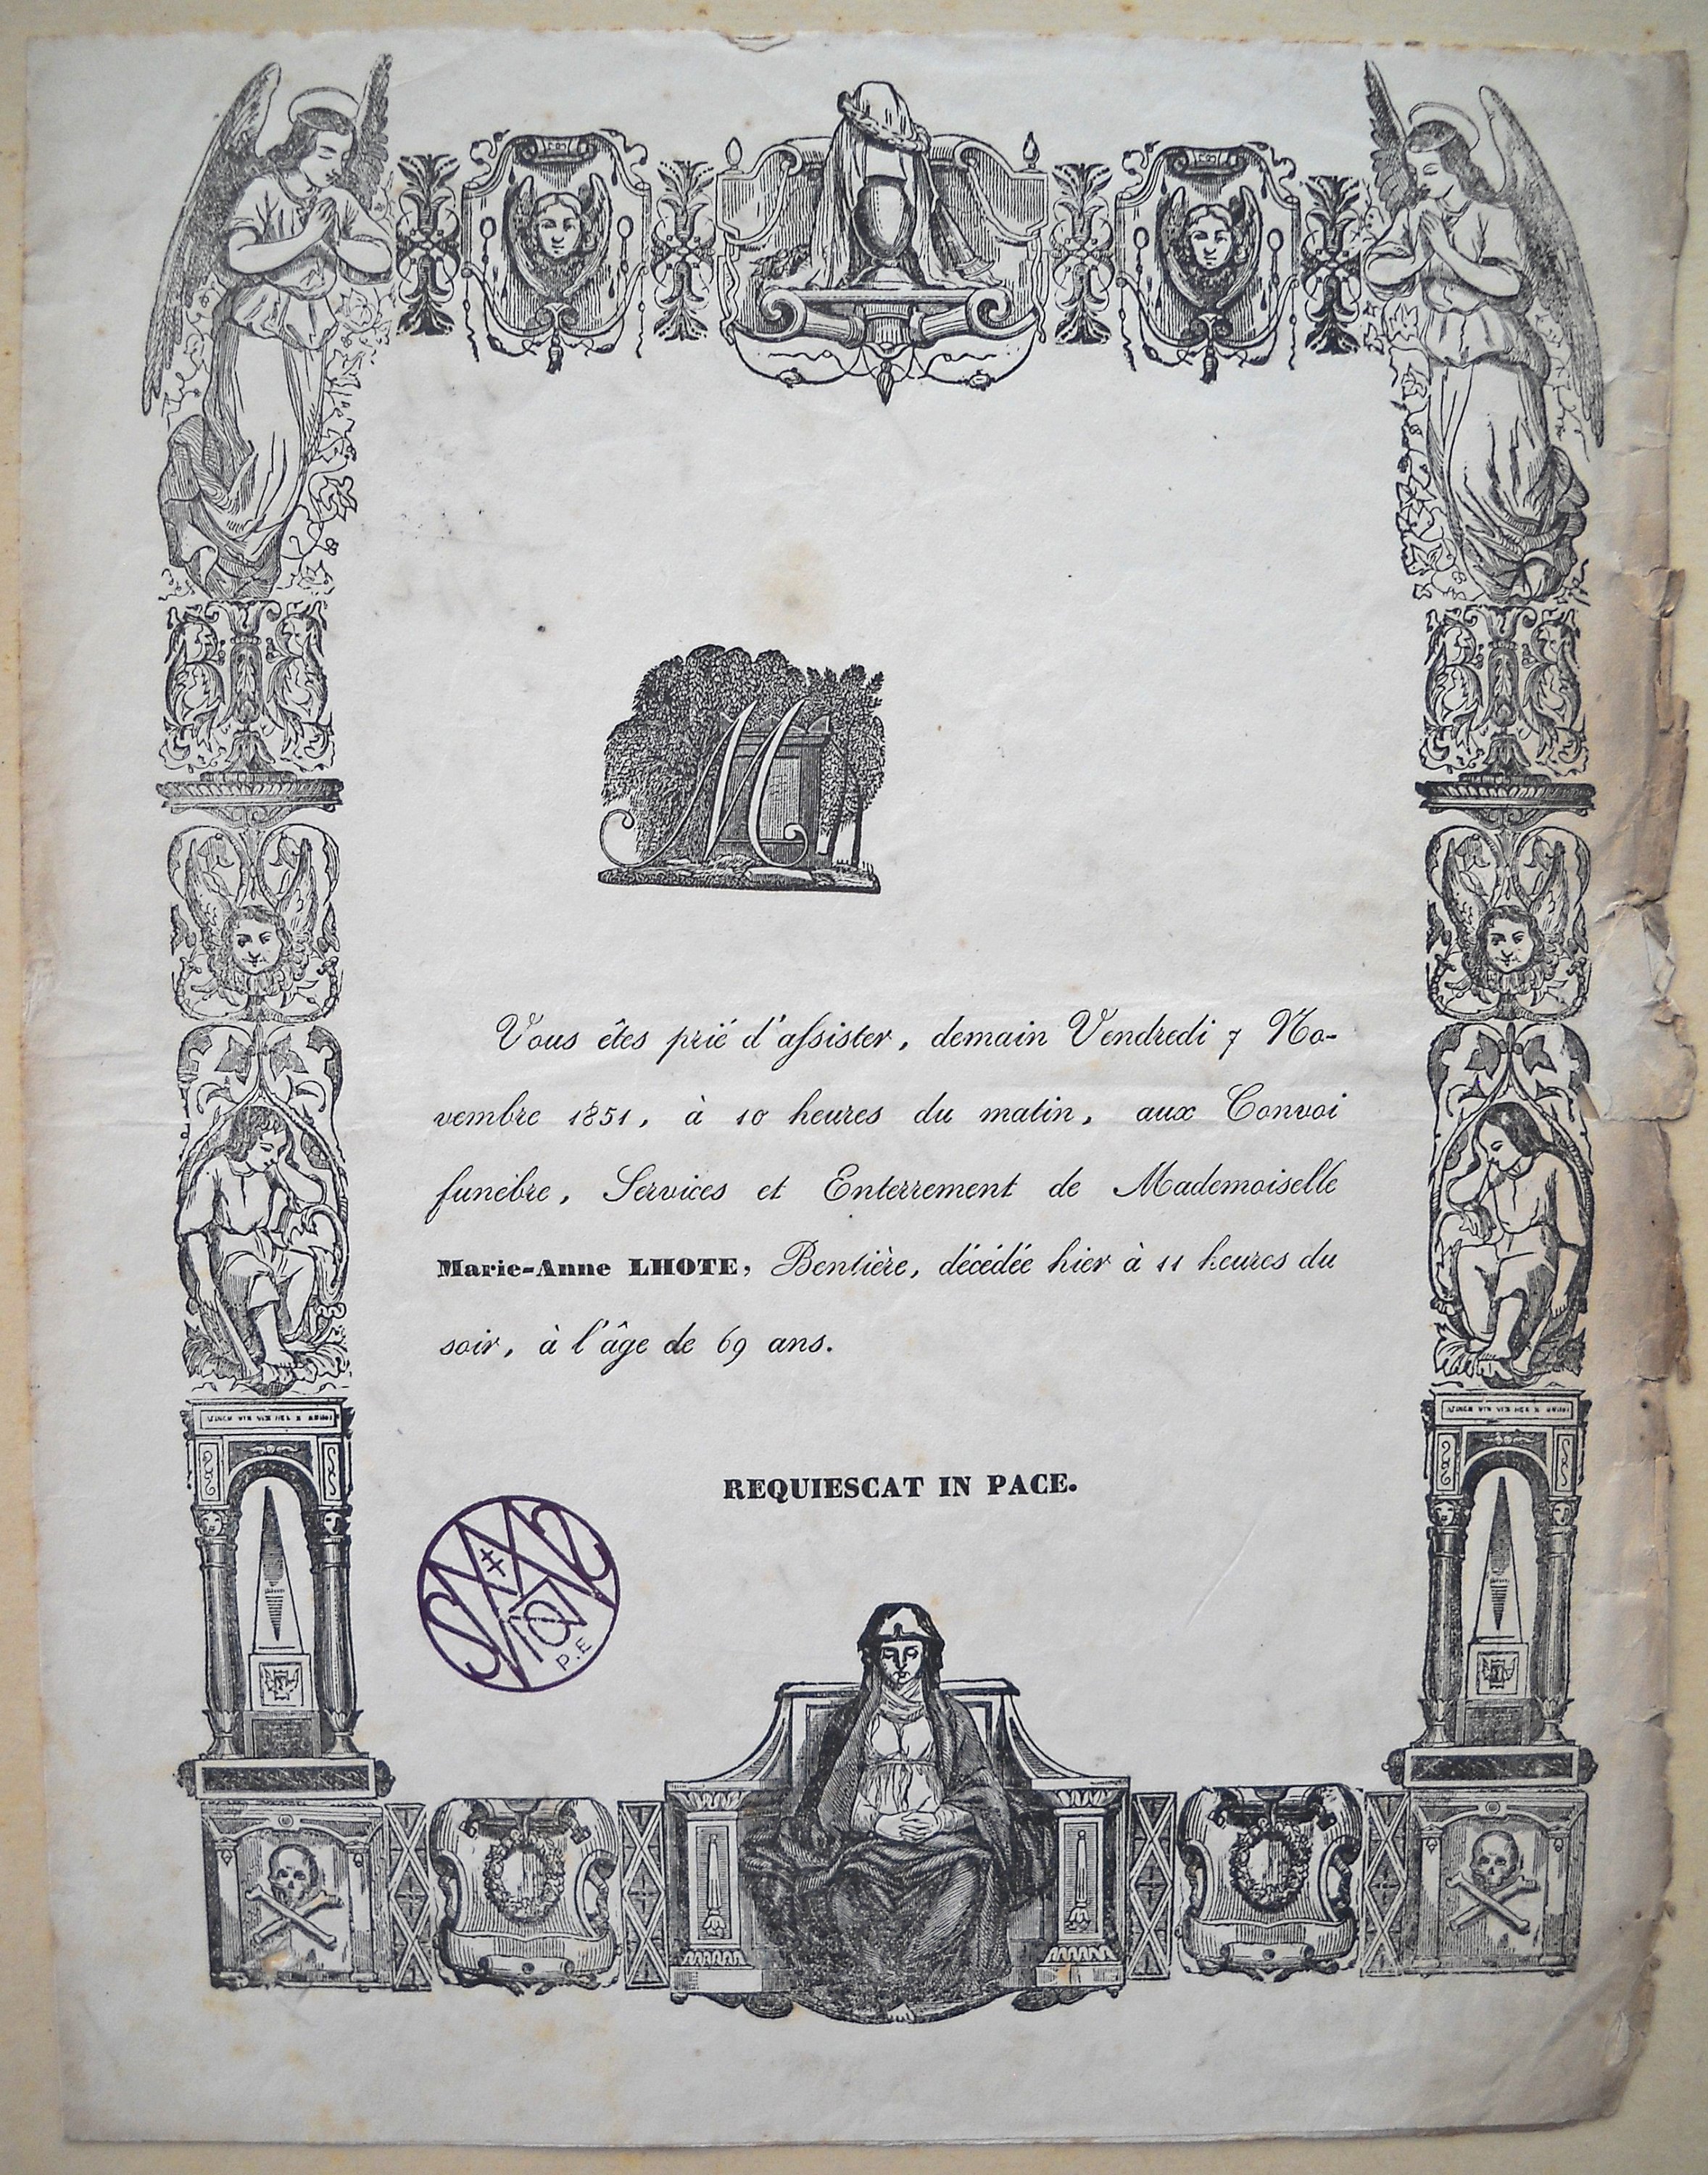 M
Vous êtes prié d'assister, demain Vendredi 7 No-
vembre 1851, à 10 heures du matin, aux Convoi
funèbre, Services et Enterrement de Mademoiselle
Marie-Anne LHOTE, Rentière, décédée hier à 11 heures du
soir, à l'âge de 69 ans.
REQUIESCAT IN PACE.
P.E